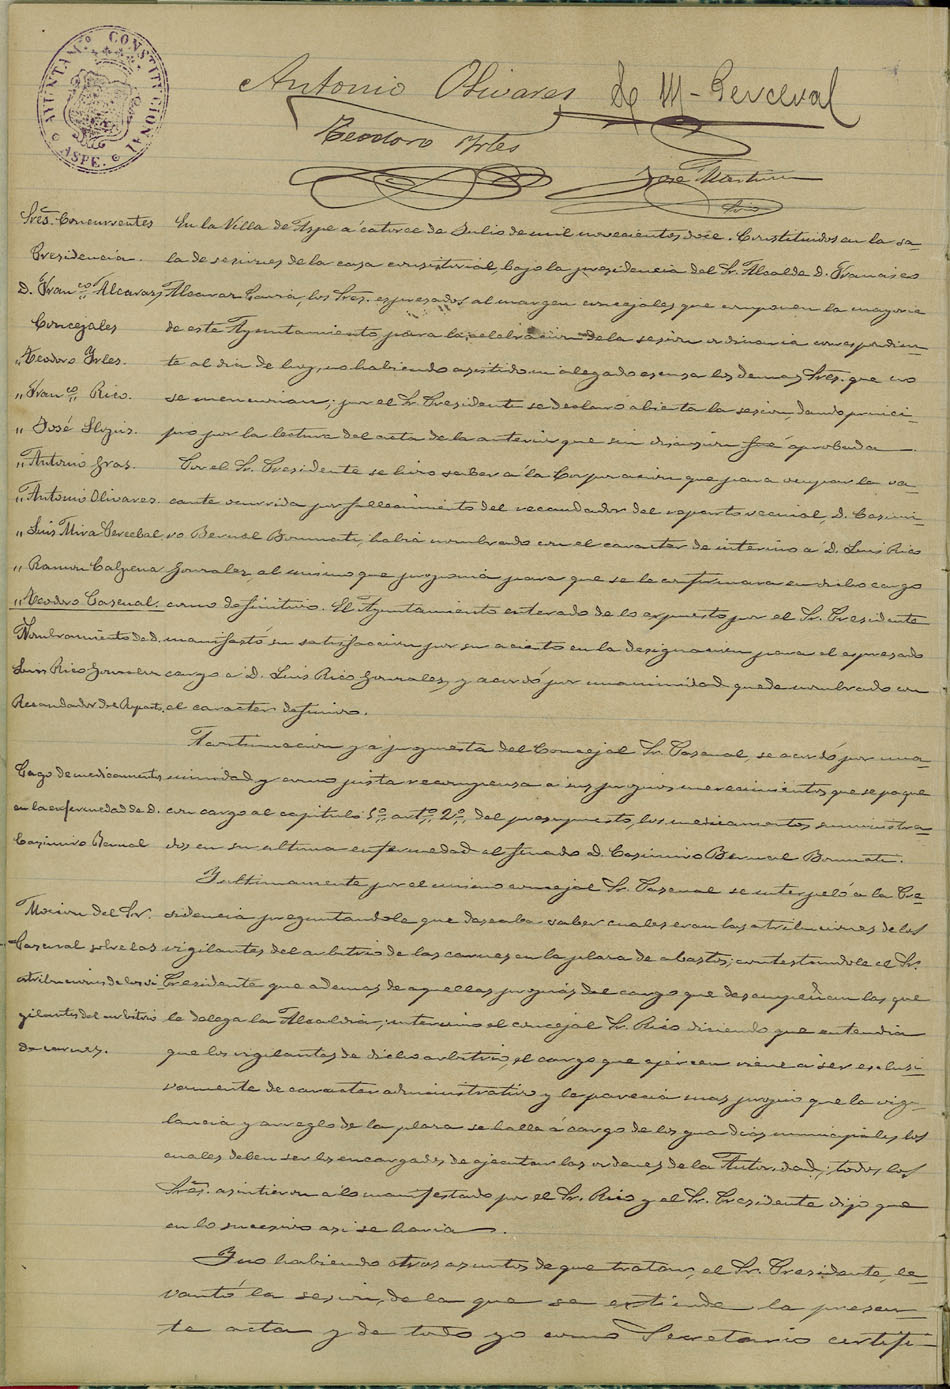 AYUNTAM.º CONSTITUCIONAL
ASPE.
Antonio Olivares L. M. Perceval
Teodoro Yrles
José Martinez
Srio
Sres. Concurrentes
Presidencia.
D. Franco Alcaraz
Concejales
„ Teodoro Yrles.
„ Franco Rico.
„ José
„ Antonio Gras.
„ Antonio Olivares.
„ Luis Mira Percebal
„ Ramon Calpena
„ Teodoro Pascual.
Nombramiento de D.
Luis Rico Gonzalez
Recaudador del Reparto.
Pago de medicamentos
en la enfermedad de D.
Casimiro Bernal
Mocion del Sr.
Pascual sobre las
atribuciones de los vi
gilantes del arbitrio
de carnes.
En la Villa de Aspe á catorce de Julio de mil novecientos doce. Constituidos en la sa-
la de sesiones de la casa consistorial, bajo la presidencia del Sr. Alcalde D. Francisco
Alcaraz Garcia, los Sres. espresados al margen concejales que componen la mayoria
de este Ayuntamiento para la celebracion de la sesion ordinaria correspondien-
te al dia de hoy, no habiendo asistido ni alegado escusa los demas Sres. que no
se mencionan; por el Sr. Presidente se declaró abierta la sesion dando princi-
pio por la lectura del acta de la anterior que sin discusion fué aprobada.
Por el Sr. Presidente se hizo saber á la Corporacion que para ocupar la va-
cante ocurrida por fallecimiento del recaudador del reparto vecinal, D. Casimi-
ro Bernal Bonmati, habia nombrado con el caracter de interino á D. Luis Rico
Gonzalez, al mismo que proponia para que se le confirmara en dicho cargo
como definitivo. El Ayuntamiento enterado de lo expuesto por el Sr. Presidente
manifestó su satisfaccion por su acierto en la designacion para el espresado
cargo á D. Luis Rico Gonzales, y acordó por unanimidad quede nombrado con
el caracter definivo.
A continuacion y á propuesta del Concejal Sr. Pascual, se acordó por una-
nimidad y como justa recompensa a sus propios merecimientos que se pague
con cargo al capitulo 5º artº 2º del presupuesto, los medicamentos suministra-
dos en su ultima enfermedad al finado D. Casimiro Bernal Bonmati.
Y ultimamente por el mismo concejal Sr. Pascual se interpeló á la Pre-
sidencia preguntandole que deseaba saber cuales eran las atribuciones de los
vigilantes del arbitrio de las carnes en la plaza de abastos; contestandole el Sr.
Presidente que ademas de aquellas propias del cargo que desempeñan las que
le delega la Alcaldia; intervino el concejal Sr. Rico diciendo que entendia
que los vigilantes de dicho arbitrio, el cargo que ejercen viene á ser esclusi-
vamente de caracter administrativo y le parecia mas propio que la vigi-
lancia y arreglo de la plaza se halle á cargo de los guardias municipales los
cuales deben ser los encargados de ejecutar las ordenes de la Autoridad; todos los
Sres. asintieron á lo manifestado por el Sr. Rico y el Sr. Presidente dijo que
en lo sucesivo asi se haria.
Y no habiendo otros asuntos de que tratar, el Sr. Presidente, le-
vantó la sesion, de la que se extiende la presen-
te acta y de todo yo como Secretario certifi-